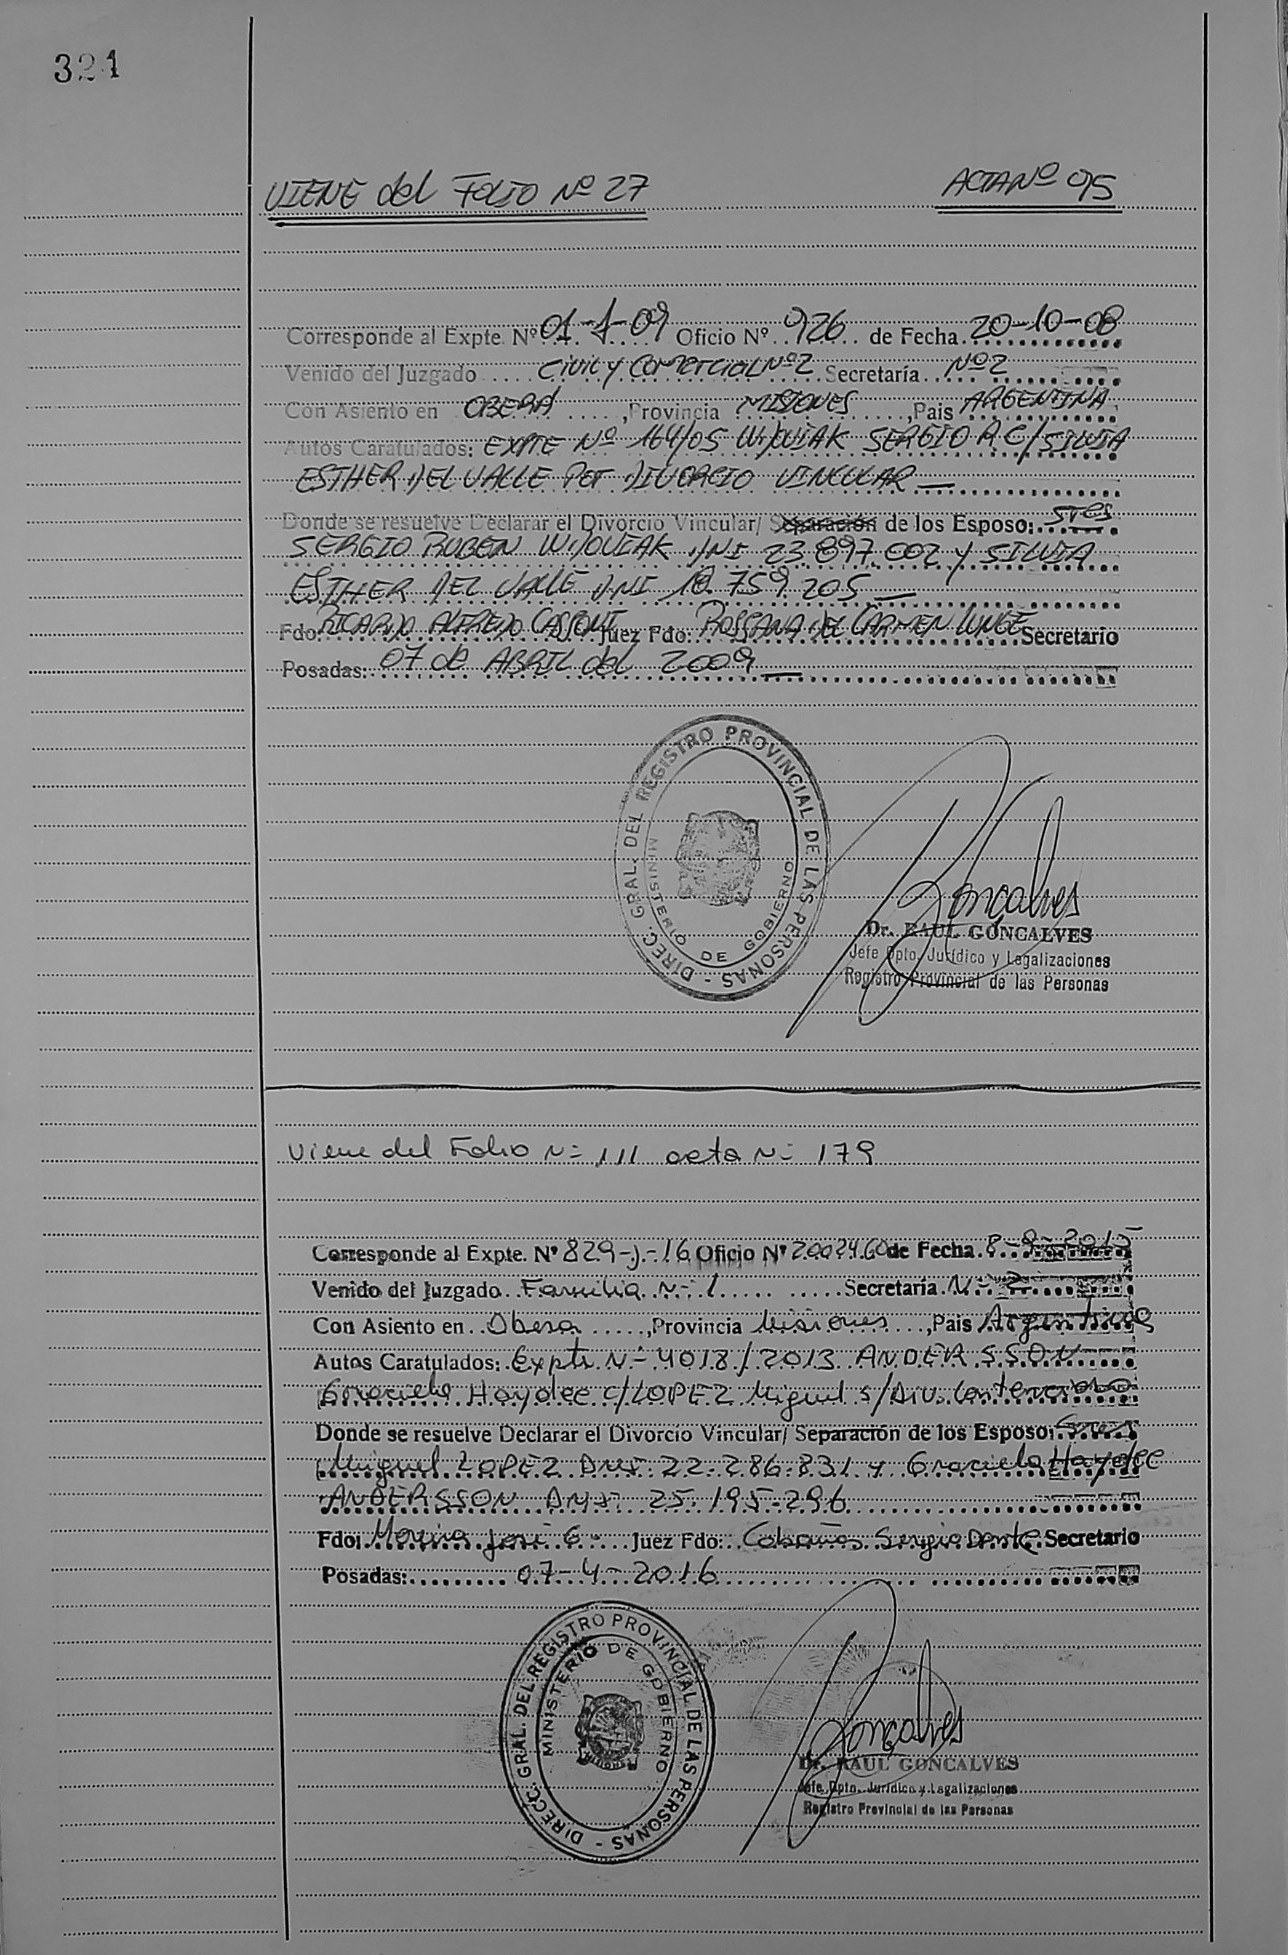 321
VIENE del FOLIO Nº 27 ACTA Nº 95
Corresponde al Expte. Nº 01-J-09 Oficio Nº 926 de Fecha 20-10-08
Venido del Juzgado Civil y Comercial Nº 2 Secretaría Nº 2
Con Asiento en OBERA, Provincia MISIONES, Pais ARGENTINA
Autos Caratulados: EXPTE Nº 164/05 WDOVIAK SERGIO R C/ SILVIA
ESTHER DEL VALLE Por DIVORCIO VINCULAR
Donde se resuelve Declarar el Divorcio Vincular/ Separación de los Esposo: Sres
SERGIO RUBEN WDOVIAK DNI 23.897.002 y SILVIA
ESTHER DEL VALLE DNI 18.759.205
Fdo: RICARDO ALFREDO CASSONI Juez Fdo: ROSSANA DEL CARMEN Secretario
Posadas: 07 de ABRIL del 2009
DIREC. GRAL. DEL REGISTRO PROVINCIAL DE LAS PERSONAS -
MINISTERIO DE GOBIERNO
Gonçalves
Dr. RAUL GONÇALVES
Jefe Dpto. Jurídico y Legalizaciones
Registro Provincial de las Personas
Viene del Folio N- 111 acta N- 179
Corresponde al Expte. Nº 829-J-16 Oficio Nº de Fecha 8-9-2015
Venido del Juzgado Familia N-1 Secretaría N-2
Con Asiento en Obera, Provincia Misiones, Pais Argentina
Autos Caratulados: Expte N- 4018/2013 ANDERSSON
Graciela Haydee c/LOPEZ Miguel s/Div. Contencioso
Donde se resuelve Declarar el Divorcio Vincular/ Separación de los Esposo: Sres
Miguel LOPEZ DNI: 22-286-831 y Graciela Haydee
ANDERSSON DNI: 25-195-296
Fdo: Moreira José G- Juez Fdo: Cabañas Sergio Dante Secretario
Posadas: 07-4-2016
DIRECC. GRAL. DEL REGISTRO PROVINCIAL DE LAS PERSONAS -
MINISTERIO DE GOBIERNO
Gonçalves
Dr. RAUL GONCALVES
Jefe Dpto. Jurídico y Legalizaciones
Registro Provincial de las Personas